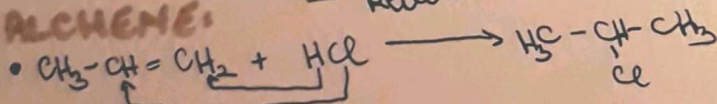 ALCHENE:
• CH3-CH = CH2 + HCl ⟶ H3C - CH - CH3
Cl